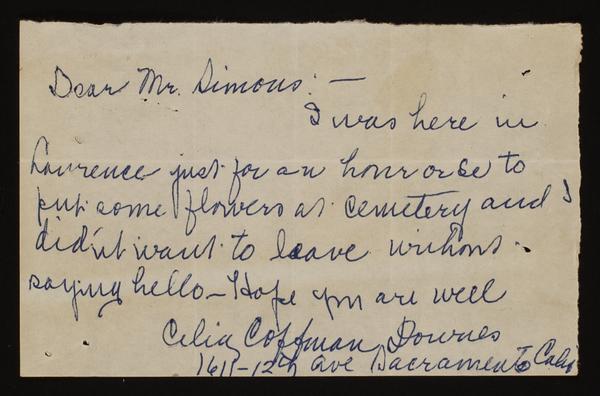 Dear Mr. Simons: —
I was here in
Lawrence just for an hour or so to
put some flowers at cemetery and I
didn't want to leave without
saying hello — Hope you are well
Celia Coffman Downes
1611 - 12th Ave Sacramento Calif